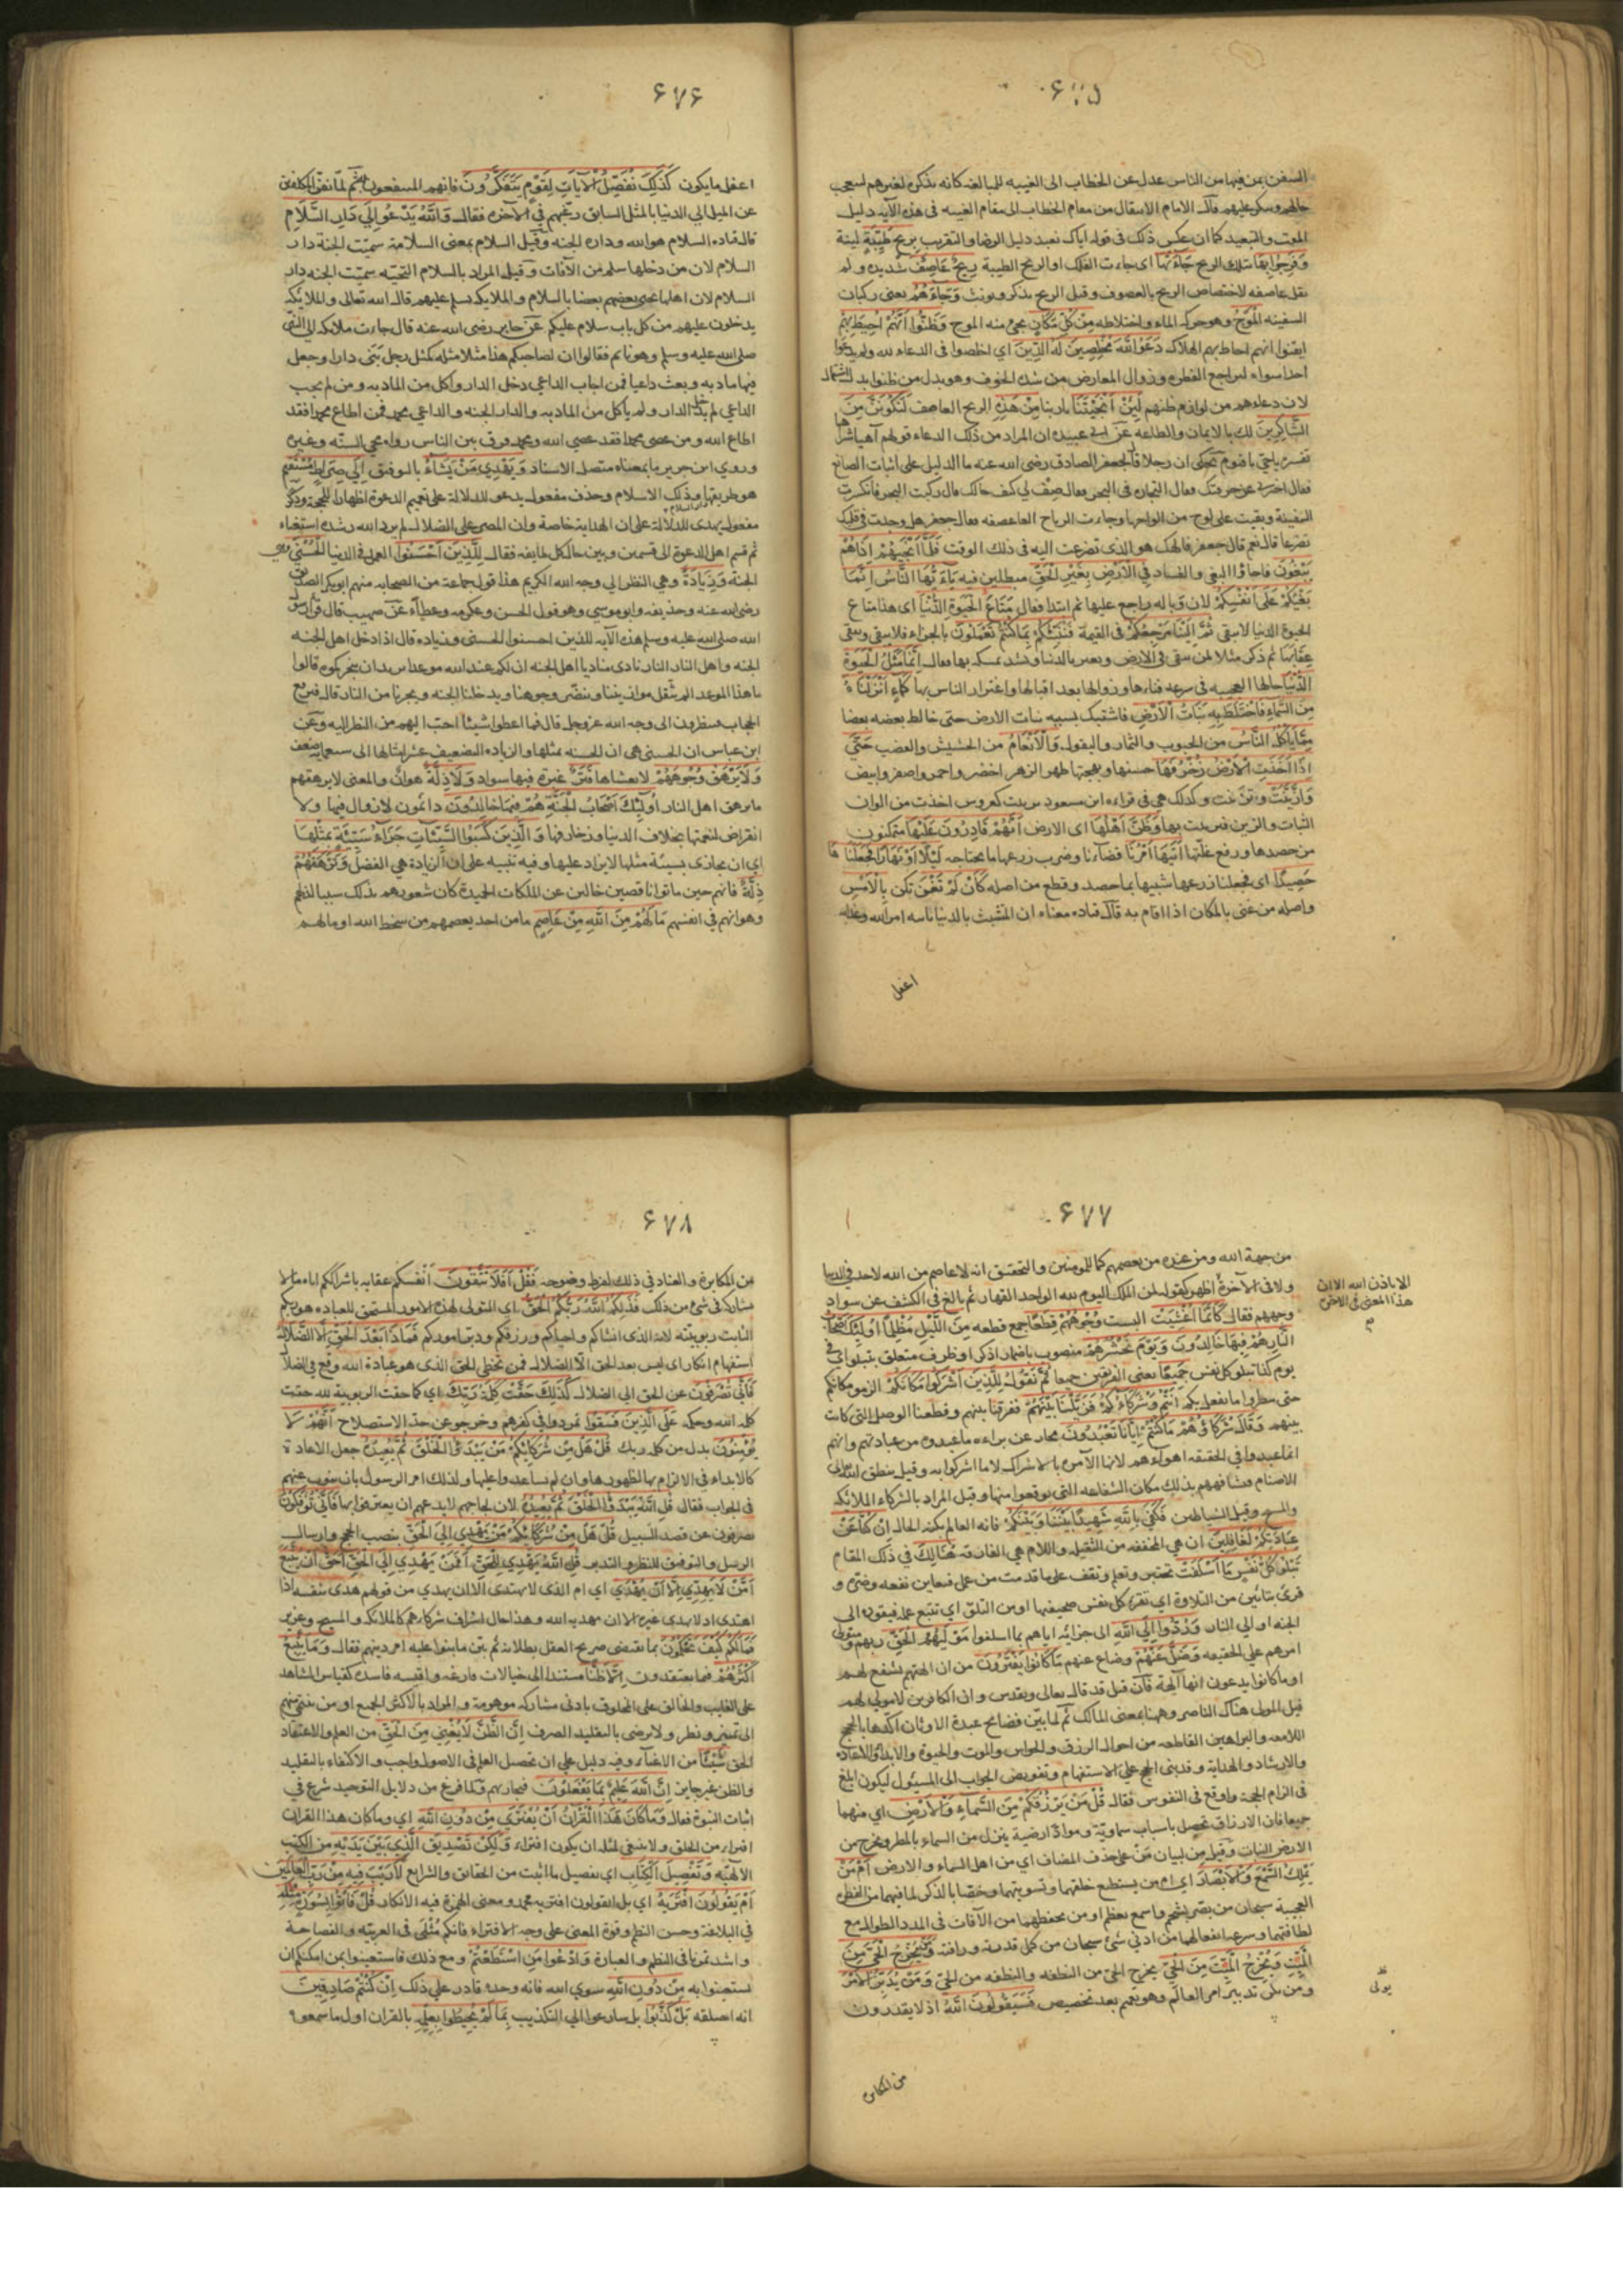 ٦٧٥
السفن بمن فيها من الناس عدل عن الخطاب الى الغيبه للمبالغه كانه يذكره لغيرهم ليتعجب
حالهم وينكر عليهم قال الامام الانتقال من مقام الخطاب الى مقام الغيبه فى هذه الآيه دليل
المقت والتبعيد كما ان عكس ذلك فى قوله اياك نعبد دليل الرضا والتقريب بِرِيحٍ طَيِّبَةٍ لينة
وَفَرِحُوا بِهَا بتلك الريح جَاءَتْهَا اى جاءت الفلك او الريح الطيبة رِيحٌ عَاصِفٌ شديده ولم
يقل عاصفه لاختصاص الريح بالعصوف وقيل الريح يذكر ويونث وَجَاءَهُمُ يعنى ركبان
السفينه الْمَوْجُ وهو حركه الماء واختلاطه مِنْ كُلِّ مَكَانٍ يجئ منه الموج وَظَنُّوا أَنَّهُمْ أُحِيطَ بِهِمْ
ايقنوا انهم احاط بهم الهلاك دَعَوُا اللَّهَ مُخْلِصِينَ لَهُ الدِّينَ اي اخلصوا فى الدعاء لله ولم يدعوا
احدا سواه لتراجع الفطره وزوال المعارض من شدة الخوف وهو بدل من ظنوا بدل اشتمال
لان دعاءهم من لوازم ظنهم لَئِنْ أَنْجَيْتَنَا يا ربنا مِنْ هَذِهِ الريح العاصف لَنَكُونَنَّ مِنَ
الشَّاكِرِينَ لك بالايمان والطاعه عن ابى عبيده ان المراد من ذلك الدعاء قولهم آهيا شراهيا
تفسيره ياحيّ ياقيوم يحكى ان رجلا قال لجعفر الصادق رضى الله عنه ما الدليل على اثبات الصانع
فقال اخبرنى عن حرفتك فقال التجاره فى البحر فقال صِفْ لى كيف حالك قال ركبت البحر فانكسرت
السفينة وبقيت على لوح من الواحها وجاءت الرياح العاصفه فقال جعفر هل وجدت فى قلبك
تضرعا قال نعم قال جعفر فالهك هو الذى تضرعت اليه فى ذلك الوقت فَلَمَّا أَنْجَيهُمْ إِذَا هُمْ
يَبْغُونَ فاجاؤا البغى والفساد فِي الْأَرْضِ بِغَيْرِ الْحَقِّ مبطلين فيه يَا أَيُّهَا النَّاسُ إِنَّمَا
بَغْيُكُمْ عَلَى أَنْفُسِكُمْ لان وباله راجع عليها ثم ابتدا فقال مَتَاعُ الْحَيَوةِ الدُّنْيَا اى هذا متاع
الحيوة الدنيا لا يبقى ثُمَّ إِلَيْنَا مَرْجِعُكُمْ فى القيمة فَنُنَبِّئُكُمْ بِمَا كُنْتُمْ تَعْمَلُونَ بالجزاء فلا يبقى ويبقى
عقابها ثم ذكر مثلا لمن يبقى فى الارض ويغتر بالدنيا ويشتد تمسكه بها فقال إِنَّمَا مَثَلُ الْحَيَوةِ
الدُّنْيَا حالها العجيبه فى سرعه فناءها وزوالها بعد اقبالها واغترار الناس بها كَمَاءٍ أَنْزَلْنَاهُ
مِنَ السَّمَاءِ فَاخْتَلَطَ بِهِ نَبَاتُ الْأَرْضِ فاشتبك بسببه نبات الارض حتى خالط بعضه بعضا
مِمَّا يَأْكُلُ النَّاسُ من الحبوب والثمار والبقول وَالْأَنْعَامُ من الحشيش والعضب حَتَّى
إِذَا أَخَذَتِ الْأَرْضُ زُخْرُفَهَا حسنها وبهجتها ظهر الزهر اخضر واحمر واصفر وابيض
وَازَّيَّنَتْ وتزينت وكذلك هى فى قراءه ابن مسعود تزينت كعروس اخذت من الوان
الثبات والزين فتزينت بها وَظَنَّ أَهْلُهَا اى الارض أَنَّهُمْ قَادِرُونَ عَلَيْهَا متمكنون
من حصدها ورفع غلتها أَتَيهَا أَمْرُنَا قضاءنا وضرب زرعها ما يحتاجه لَيْلًا أَوْ نَهَارًا فَجَعَلْنَاهَا
حَصِيدًا اى فجعلنا زرعها شبيها بما حصد وقطع من اصله كَأَنْ لَمْ تَغْنَ تكن بِالْأَمْسِ
واصله من غنى بالمكان اذا اقام به قال قتاده معناه ان المتشبث بالدنيا ياتيه امر الله وعذابه
اغفل
٦٧٦
اغفل ما يكون كَذَلِكَ نُفَصِّلُ الْآيَاتِ لِقَوْمٍ يَتَفَكَّرُونَ فانهم المنتفعون به ثم لما نفّر المكلفين
عن الميل الى الدنيا بالمثل السابق رغبهم فى الآخره فقال وَاللَّهُ يَدْعُو إِلَى دَارِ السَّلَامِ
قال قتاده السلام هو الله وداره الجنه وقيل السلام بمعنى السلامة سميت الجنة دار
السلام لان من دخلها سلم من الآفات وقيل المراد بالسلام التحيّه سميت الجنه دار
السلام لان اهلها يحيى بعضهم بعضا بالسلام والملايكه يسلم عليهم قال الله تعالى والملائكه
يدخلون عليهم من كل باب سلام عليكم عن جابر رضى الله عنه قال جاءت ملائكه الى النبى
صلى الله عليه وسلم وهو نائم فقالوا ان لصاحبكم هذا مثلا مثله كمثل رجل بنى دارا وجعل
فيها مادبه وبعث داعيا فمن اجاب الداعي دخل الدار واكل من المادبه ومن لم يجب
الداعي لم يدخل الدار ولم ياكل من المادبه والدار الجنه والداعي محمد فمن اطاع محمدا فقد
اطاع الله ومن عصى محمدا فقد عصى الله ومحمد فرق بين الناس رواه محي السنّه وغيره
وروي ابن جرير ما بمعناه متصل الاسناد وَيَهْدِي مَنْ يَشَاءُ بالتوفيق إِلَى صِرَاطٍ مُسْتَقِيمٍ
هو طريقها وذلك الاسلام وحذف مفعول يدعو للدلالة على تعميم الدعوة اظهارا للحجّة وذكر
دار السلام
مفعول يهدى للدلالة على ان الهداية خاصة وان المصر على الضلال لم يرد الله رشده استغناء
ثم قسم اهل الدعوة الى قسمين وبين حال كل طايفه فقال لِلَّذِينَ أَحْسَنُوا العمل فى الدنيا الْحُسْنَى وهي
الجنة وَزِيَادَةٌ وهي النظر الى وجه الله الكريم هذا قول جماعة من الصحابه منهم ابوبكر الصديق
رضى الله عنه وحذيفه وابو موسى وهو قول الحسن وعكرمه وعطآء عن صهيب قال قرا رسول
الله صلى الله عليه وسلم هذه الآيه للذين احسنوا الحسنى وزياده قال اذا دخل اهل الجنه
الجنه واهل النار النار نادى مناد يا اهل الجنه ان لكم عند الله موعدا يريد ان ينجزكموه قالوا
ما هذا الموعد الم يثقل موازيننا وينضّر وجوهنا ويدخلنا الجنه ويجرنا من النار قال فيرفع
الحجاب فينظرون الى وجه الله عز وجل قال فما اعطوا شيئا احب اليهم من النظر اليه وعن
ابن عباس ان الحسنى هى ان للحسنه بمثلها والزياده التضعيف عشر امثالها الى سبعمايه ضعف
وَلَا يَرْهَقُ وُجُوهَهُمْ لا يغشاها قَتَرٌ غبرة فيها سواد وَلَا ذِلَّةٌ هوان والمعنى لا يرهقهم
ما يرهق اهل النار أُولَئِكَ أَصْحَابُ الْجَنَّةِ هُمْ فِيهَا خَالِدُونَ دائمون لا زوال فيها ولا
انقراض لنعمتها بخلاف الدنيا وزخارفها وَالَّذِينَ كَسَبُوا السَّيِّئَاتِ جَزَاءُ سَيِّئَةٍ بِمِثْلِهَا
اي ان يجازى بسيئة مثلها لا يزاد عليها وفيه تنبيه على ان الزيادة هي الفضل وَتَرْهَقُهُمْ
ذِلَّةٌ فانهم حين ماتوا ناقصين خالين عن الملكات الحميدة كان شعورهم بذلك سببا لذلهم
وهوانهم في انفسهم مَا لَهُمْ مِنَ اللَّهِ مِنْ عَاصِمٍ ما من احد يعصمهم من سخط الله او ما لهم
٦٧٧
من جهة الله ومن عنده من يعصمهم كما للمومنين والتحقيق انه لا عاصم من الله لاحد فى الدنيا
ولا فى الآخرة اظهر كقوله لمن الملك اليوم لله الواحد القهار ثم بالغ فى الكشف عن سواد
الا باذن الله الا ان
هذا المعنى فى الاخرة
وجههم فقال كَأَنَّمَا أُغْشِيَتْ البست وُجُوهُهُمْ قِطَعًا جمع قطعه مِنَ اللَّيْلِ مُظْلِمًا أُولَئِكَ أَصْحَابُ
النَّارِ هُمْ فِيهَا خَالِدُونَ وَيَوْمَ نَحْشُرُهُمْ منصوب باضمار اذكر او ظرف متعلق بتبلوا فى
يوم كذا تبلو كل نفس جَمِيعًا يعنى الفريقين جمعا ثُمَّ نَقُولُ لِلَّذِينَ أَشْرَكُوا مَكَانَكُمْ الزموا مكانكم
حتى تنظروا ما نفعل بكم أَنْتُمْ وَشُرَكَاءُكُمْ فَزَيَّلْنَا بَيْنَهُمْ ففرقنا بينهم وقطعنا الوصل التى كانت
بينهم وَقَالَ شُرَكَاؤُهُمْ مَا كُنْتُمْ إِيَّانَا تَعْبُدُونَ مجاز عن براءه ما عبدوه من عبادتهم وانهم
انما عبدوا فى الحقيقه اهواءهم لانها الآمره بالاشراك لا ما اشركوا به وقيل ينطق الله تعالى
الاصنام فتشافههم بذلك مكان الشفاعه التى توقعوا منها وقيل المراد بالشركاء الملائكه
والمسيح وقيل الشياطين فَكَفَى بِاللَّهِ شَهِيدًا بَيْنَنَا وَبَيْنَكُمْ فانه العالم بكنه الحال إِنْ كُنَّا عَنْ
عِبَادَتِكُمْ لَغَافِلِينَ ان هي المخففه من الثقيله واللام هي الفارقة هُنَالِكَ في ذلك المقام
تَبْلُو كُلُّ نَفْسٍ مَا أَسْلَفَتْ تختبر وتعلم وتقف على ما قدمت من عمل فتعاين نفعه وضرّه و
قرئ بتائين من التلاوة اي تقرء كل نفس صحيفتها او من التلو اي تتبع عمله فيقوده الى
الجنه او الى النار وَرُدُّوا إِلَى اللَّهِ الى جزائه اياهم بما اسلفوا مَوْلَيهُمُ الْحَقِّ ربهم ومتولى
امرهم على الحقيقه وَضَلَّ عَنْهُمْ وضاع عنهم مَا كَانُوا يَفْتَرُونَ من ان الهتهم تشفع لهم
او ما كانوا يدعون انها آلهة فان قيل قد قال تعالى وتقدس وان الكافرين لا مولى لهم
قيل المولى هناك الناصر وههنا بمعنى المالك ثم لما بين فضائح عبدة الاوثان اكدها بالحجج
اللامعه والبراهين القاطعه من احوال الرزق والحواس والموت والحيوة والابداء والاعاده
والارشاد والهداية وقد بنى الحجج على الاستفهام وتفويض الجواب الى المسئول ليكون ابلغ
فى الزام الحجة واوقع فى النفوس فقال قُلْ مَنْ يَرْزُقُكُمْ مِنَ السَّمَاءِ وَالْأَرْضِ اى منهما
جميعا فان الارزاق تحصل باسباب سماويّة وموادّ ارضية ينزل من السماء بالمطر ويخرج من
الارض النبات وقيل من لبيان مَن على حذف المضاف اي من اهل السماء والارض أَمَّنْ
يَمْلِكُ السَّمْعَ وَالْأَبْصَارَ اي ام من يستطيع خلقهما وتسويتهما وخصا بالذكر لما فيهما من الفطره
العجيبة سبحان من بصر بشحم واسمع بعظم او من يحفظهما من الآفات فى المدد الطوال مع
لطافتهما وسرعه انفعالهما من ادنى شئ سبحان من كمل قدرته ورافته وَمَنْ يُخْرِجُ الْحَيَّ مِنَ
الْمَيِّتِ وَيُخْرِجُ الْمَيِّتَ مِنَ الْحَيِّ يخرج الحيّ من النطفه والنطفه من الحيّ وَمَنْ يُدَبِّرُ الْأَمْرَ
ومن يلي تدبير امر العالم وهو تعميم بعد تخصيص فَسَيَقُولُونَ اللَّهُ اذ لا يقدرون
يولى
من المكابره
٦٧٨
من المكابرة والعناد في ذلك لفرط وضوحه فَقُلْ أَفَلَا تَتَّقُونَ أنفسكم عقابه باشراككم اياه ما لا
يشاركه فى شئ من ذلك فَذَلِكُمُ اللَّهُ رَبُّكُمُ الْحَقُّ اي المتولى لهذه الامور المستحق للعباده هو ربكم
الثابت ربوبيّته لانه الذى انشاكم واحياكم ورزقكم ودبر اموركم فَمَاذَا بَعْدَ الْحَقِّ إِلَّا الضَّلَالُ
استفهام انكار اى ليس بعد الحق الا الضلال فمن تخطى الحق الذى هو عبادة الله وقع فى الضلال
فَأَنَّى تُصْرَفُونَ عن الحق الى الضلال كَذَلِكَ حَقَّتْ كَلِمَةُ رَبِّكَ اي كما حقت الربوبية لله حقت
كلمه الله وحكمه عَلَى الَّذِينَ فَسَقُوا تمردوا فى كفرهم وخرجوا عن حدّ الاستصلاح أَنَّهُمْ لَا
يُؤْمِنُونَ بدل من كلمه ربك قُلْ هَلْ مِنْ شُرَكَائِكُمْ مَنْ يَبْدَؤُا الْخَلْقَ ثُمَّ يُعِيدُهُ جعل الاعادة
كالابداء فى الالزام بها لظهورها وان لم يساعدوا عليها ولذلك امر الرسول بان ينوب عنهم
فى الجواب فقال قُلِ اللَّهُ يَبْدَؤُا الْخَلْقَ ثُمَّ يُعِيدُهُ لان لجاجهم لا يدعهم ان يعترفوا بها فَأَنَّى تُؤْفَكُونَ
تصرفون عن قصد السبيل قُلْ هَلْ مِنْ شُرَكَائِكُمْ مَنْ يَهْدِي إِلَى الْحَقِّ بنصب الحجج وارسال
الرسل والتوفيق للنظر والتدبر قُلِ اللَّهُ يَهْدِي لِلْحَقِّ أَفَمَنْ يَهْدِي إِلَى الْحَقِّ أَحَقُّ أَنْ يُتَّبَعَ
أَمَّنْ لَا يَهِدِّي إِلَّا أَنْ يُهْدَى اي ام الذى لا يهتدى الا ان يهدى من قولهم هدى بنفسه اذا
اهتدى او لا يهدى غيره الا ان يهديه الله وهذا حال اشراف شركاءهم كالملائكه والمسيح وعزير
فَمَا لَكُمْ كَيْفَ تَحْكُمُونَ بما يقتضى صريح العقل بطلانه ثم بيّن ما بنوا عليه امر دينهم فقال وَمَا يَتَّبِعُ
أَكْثَرُهُمْ فيما يعتقدون إِلَّا ظَنًّا مستندا الى خيالات فارغه واقيسه فاسده كقياس المشاهد
على الغايب والخالق على المخلوق بادنى مشاركه موهومة والمراد بالاكثر الجميع او من ينتمى منهم
الى تمييز ونظر ولا يرضى بالتقليد الصرف إِنَّ الظَّنَّ لَا يُغْنِي مِنَ الْحَقِّ من العلم والاعتقاد
الحق شَيْئًا من الاغناء وفيه دليل على ان تحصيل العلم فى الاصول واجب والاكتفاء بالتقليد
والظن غير جايز إِنَّ اللَّهَ عَلِيمٌ بِمَا يَفْعَلُونَ فيجازيهم ولما فرغ من دلايل التوحيد شرع فى
اثبات النبوة فقال وَمَا كَانَ هَذَا الْقُرْآنُ أَنْ يُفْتَرَى مِنْ دُونِ اللَّهِ اي وما كان هذا القران
افتراء من الخلق ولا ينبغى لمثله ان يكون افتراء وَلَكِنْ تَصْدِيقَ الَّذِي بَيْنَ يَدَيْهِ من الكتب
الالهيّه وَتَفْصِيلَ الْكِتَابِ اى تفصيل ما اثبت من الحقائق والشرايع لَا رَيْبَ فِيهِ مِنْ رَبِّ الْعَالَمِينَ
أَمْ يَقُولُونَ افْتَرَيهُ اي بل ايقولون افتريه محمد ومعنى الهمزة فيه الانكار قُلْ فَأْتُوا بِسُورَةٍ مِثْلِهِ
في البلاغة وحسن النظم وقوة المعنى على وجه الافتراء فانكم مثلى فى العربيّه والفصاحة
واشد تمرنا فى النظم والعبارة وَادْعُوا مَنِ اسْتَطَعْتُمْ ومع ذلك فاستعينوا بمن امكنكم ان
تستعينوا به مِنْ دُونِ اللَّهِ سوى الله فانه وحده قادر على ذلك إِنْ كُنْتُمْ صَادِقِينَ
انه اختلقه بَلْ كَذَّبُوا بل سارعوا الى التكذيب بِمَا لَمْ يُحِيطُوا بِعِلْمِهِ بالقران اول ما سمعوه